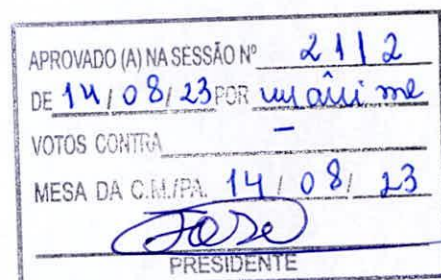 APROVADO (A) NA SESSÃO Nº 2112
DE 14/08/23 POR unânime
VOTOS CONTRA –
MESA DA C.M./PA. 14/08/23
PRESIDENTE